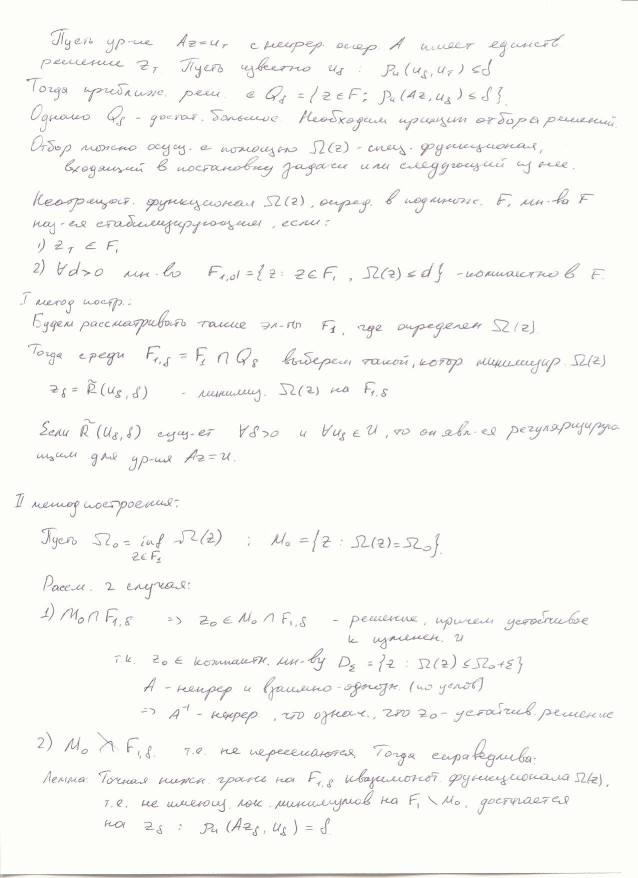 Пусть ур-ие Az=u_T с непрер. опер. A имеет единств.
решение z_T. Пусть известно u_δ : ρ_u(u_δ, u_T) ≤ δ
Тогда приближ. реш. ∈ Q_δ = {z∈F; ρ_u(Az, u_δ) ≤ δ}.
Однако Q_δ - достат. большое. Необходим принцип отбора решений.
Отбор можно осущ. с помощью Ω(z) - спец. функционал,
входящий в постановку задачи или следующий из нее.
Неотрицат. функционал Ω(z), опред. в подмнож. F₁ мн-ва F
наз-ся стабилизирующим, если:
1) z_T ∈ F₁
2) ∀d>0 мн-во F_{1,d} = {z: z∈F₁, Ω(z) ≤ d} - компактно в F.
I метод постр.:
Будем рассматривать такие эл-ты F₁, где определен Ω(z)
Тогда среди F_{1,δ} = F₁ ∩ Q_δ выберем такой, котор минимизир. Ω(z)
z_δ = R̃(u_δ, δ) - минимиз. Ω(z) на F_{1,δ}
Если R̃(u_δ, δ) сущ-ет ∀δ>0 и ∀u_δ ∈ U, то он явл-ся регуляризирую
щим для ур-ия Az=u.
II метод построения:
Пусть Ω₀ = inf Ω(z) ; M₀ = {z : Ω(z)=Ω₀}.
z∈F₁
Рассм. 2 случая:
1) M₀ ∩ F_{1,δ} => z₀ ∈ M₀ ∩ F_{1,δ} - решение, причем устойчивое
к изменен. u
т.к. z₀ ∈ компактн. мн-ву D_ε = {z : Ω(z) ≤ Ω₀+ε}
A - непрер и взаимно-однозн. (по услов)
=> A⁻¹ - непрер., что означ., что z₀ - устойчив. решение
2) M₀ F_{1,δ}. т.е. не пересекаются. Тогда справедлива:
Лемма: Точная нижн. грань на F_{1,δ} квазимонот. функционала Ω(z),
т.е. не имеющ. лок. минимумов на F₁ \ M₀, достигается
на z_δ : ρ_u(Az_δ, u_δ) = δ.